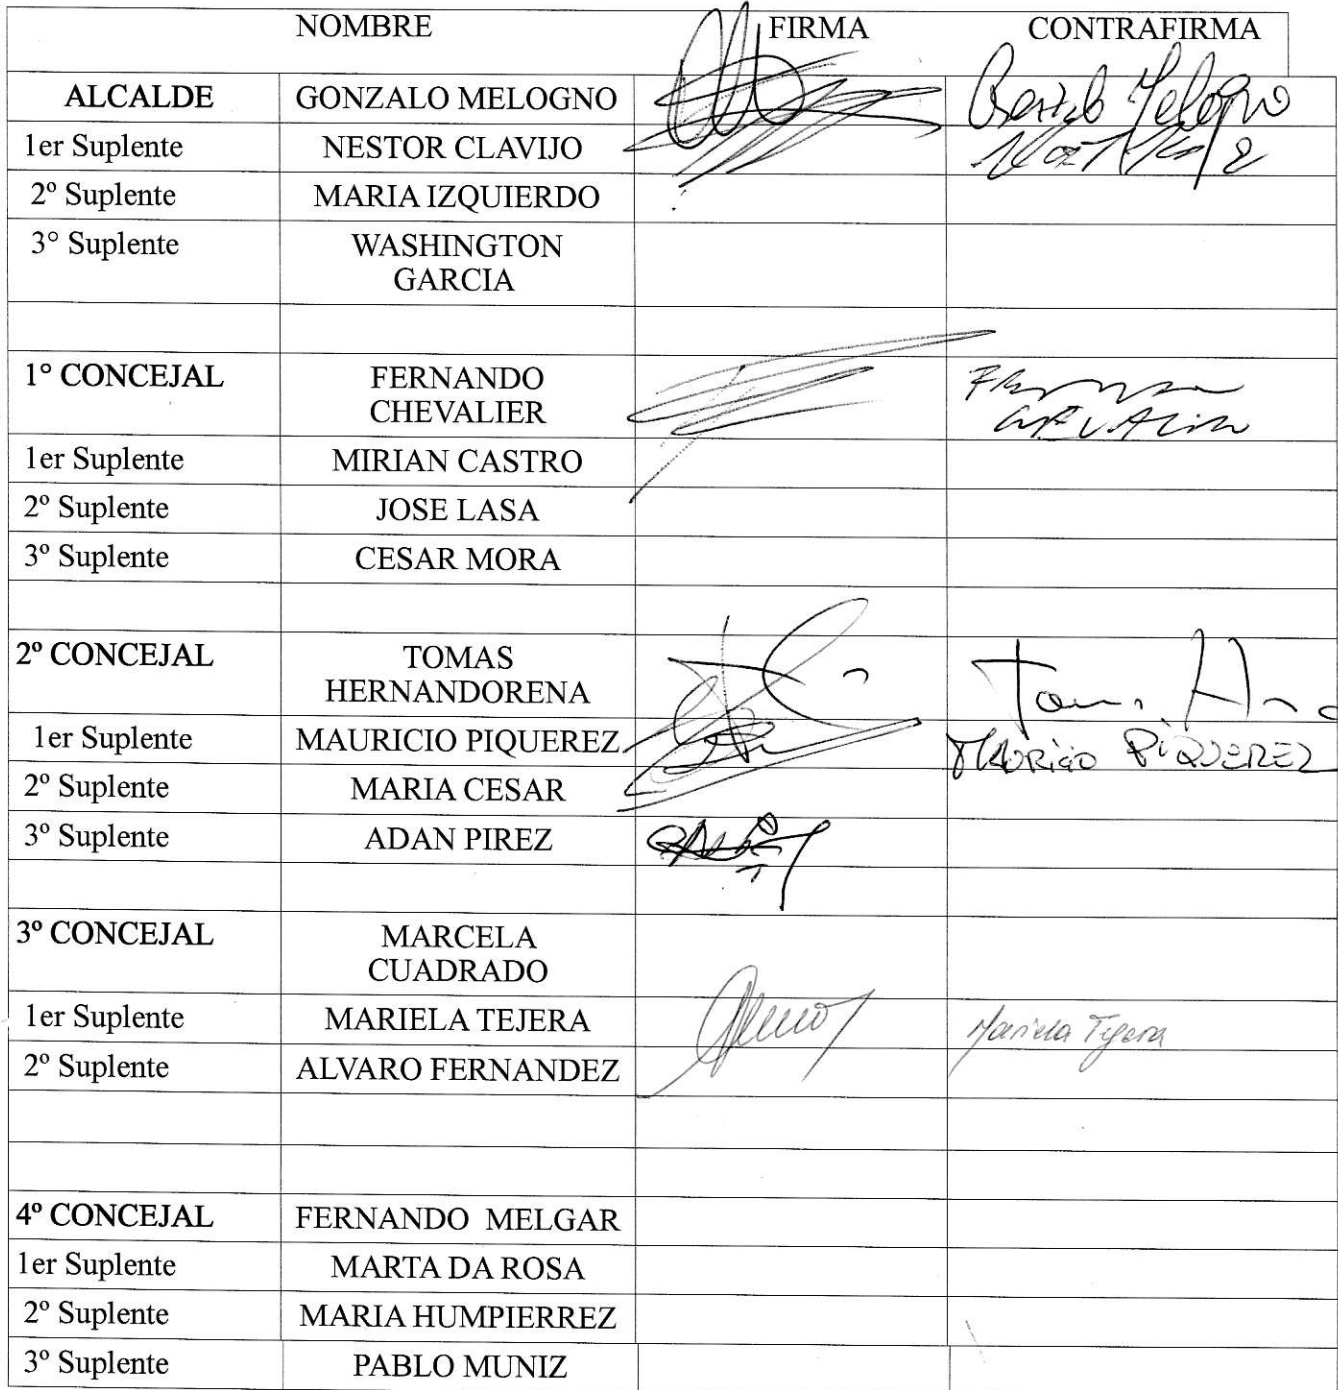 NOMBRE FIRMA CONTRAFIRMA
ALCALDE GONZALO MELOGNO Melogno
1er Suplente NESTOR CLAVIJO
2º Suplente MARIA IZQUIERDO
3° Suplente WASHINGTON
GARCIA
1° CONCEJAL FERNANDO
CHEVALIER
1er Suplente MIRIAN CASTRO
2º Suplente JOSE LASA
3º Suplente CESAR MORA
2º CONCEJAL TOMAS
HERNANDORENA
1er Suplente MAURICIO PIQUEREZ MAURICIO PIQUEREZ
2º Suplente MARIA CESAR
3º Suplente ADAN PIREZ
3º CONCEJAL MARCELA
CUADRADO
1er Suplente MARIELA TEJERA Mariela Tejera
2º Suplente ALVARO FERNANDEZ
4º CONCEJAL FERNANDO MELGAR
1er Suplente MARTA DA ROSA
2º Suplente MARIA HUMPIERREZ
3º Suplente PABLO MUNIZ